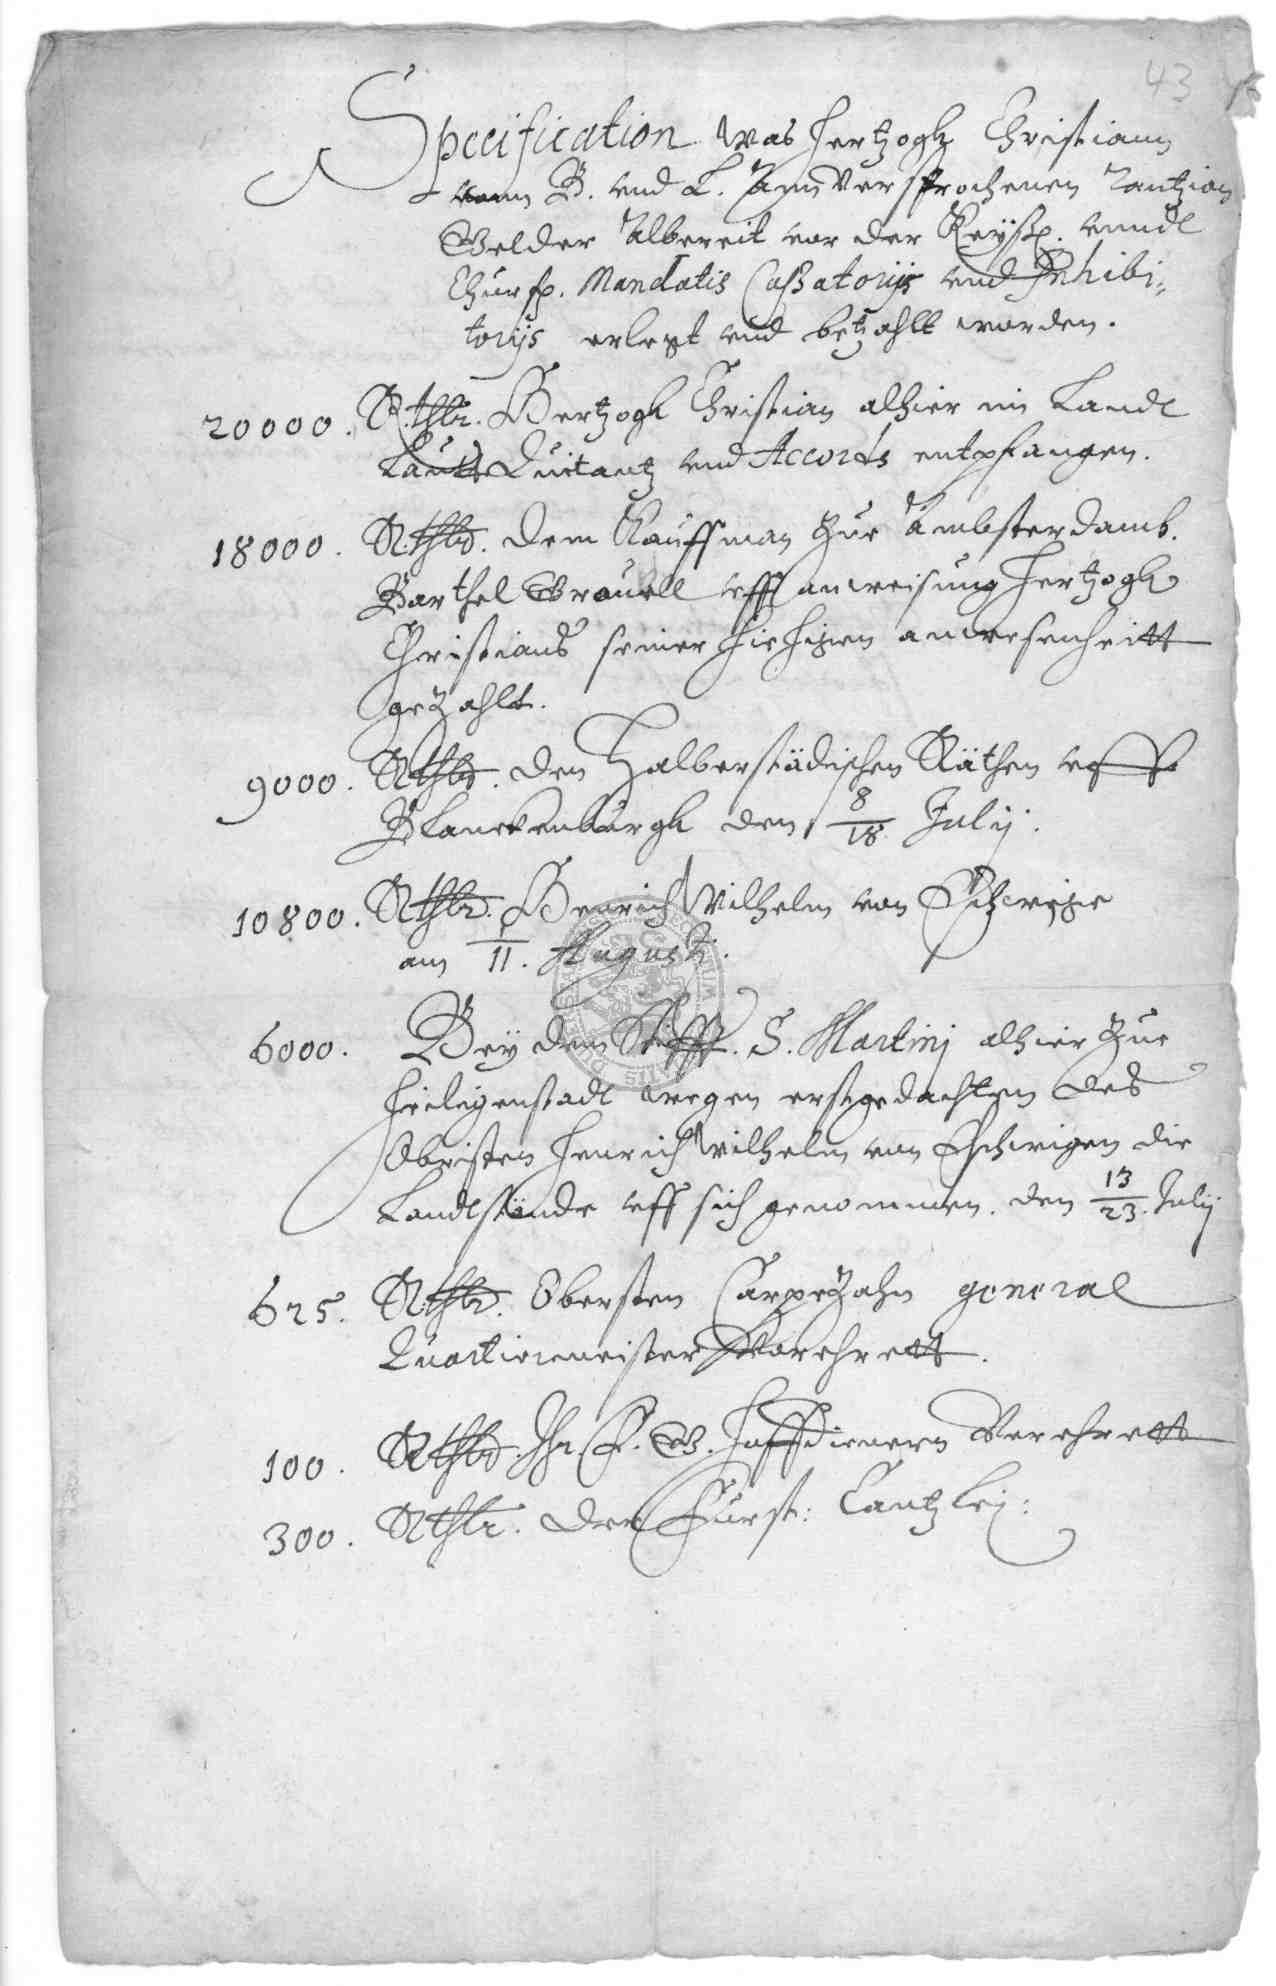 43
Specification was Hertzogh Christiann
vonn B. vnd L. Jhm versprochenen Rantzion
Gelder Albereit vor der Keyß. vnndt
Churfr. Mandatis Caßatorijs vnd Jnhibi:
torijs erlegt vnd betzahlt worden.
20000. R.thlr. Hertzogh Christian alhier im Landt
Lautt Quitantz vnd Accords entpfangen.
18000. R.thlr. dem Kauffman Zue Ambsterdamb.
Barthel Brauell vff anweisung Hertzogh
Christians seiner hiehigen anwesenheitt
geZahlt.
9000. Rthlr. den Halberstädischen Räthen vff
Blanckenburgh den 8/18 Julij.
10800. Rthlr. Henrich Wilhelm von Eschwege
am 1/11. Augusti.
6000. Bey dem Stifft. S. Martinj alhier Zue
Heiligenstadt wegen erstgedachten des
Obristen Henrich Wilhelm von Eschwigen die
Landtstände vff sich genommen. den 13/23. Julij
625. Rthlr. Obersten CarpeZahn general
Quartiermeister Verehrett.
100. Rthlr. Jhr F. G. Hoffdienern Verehrett
300. Rthlr. der Fürst: Cantzlej: